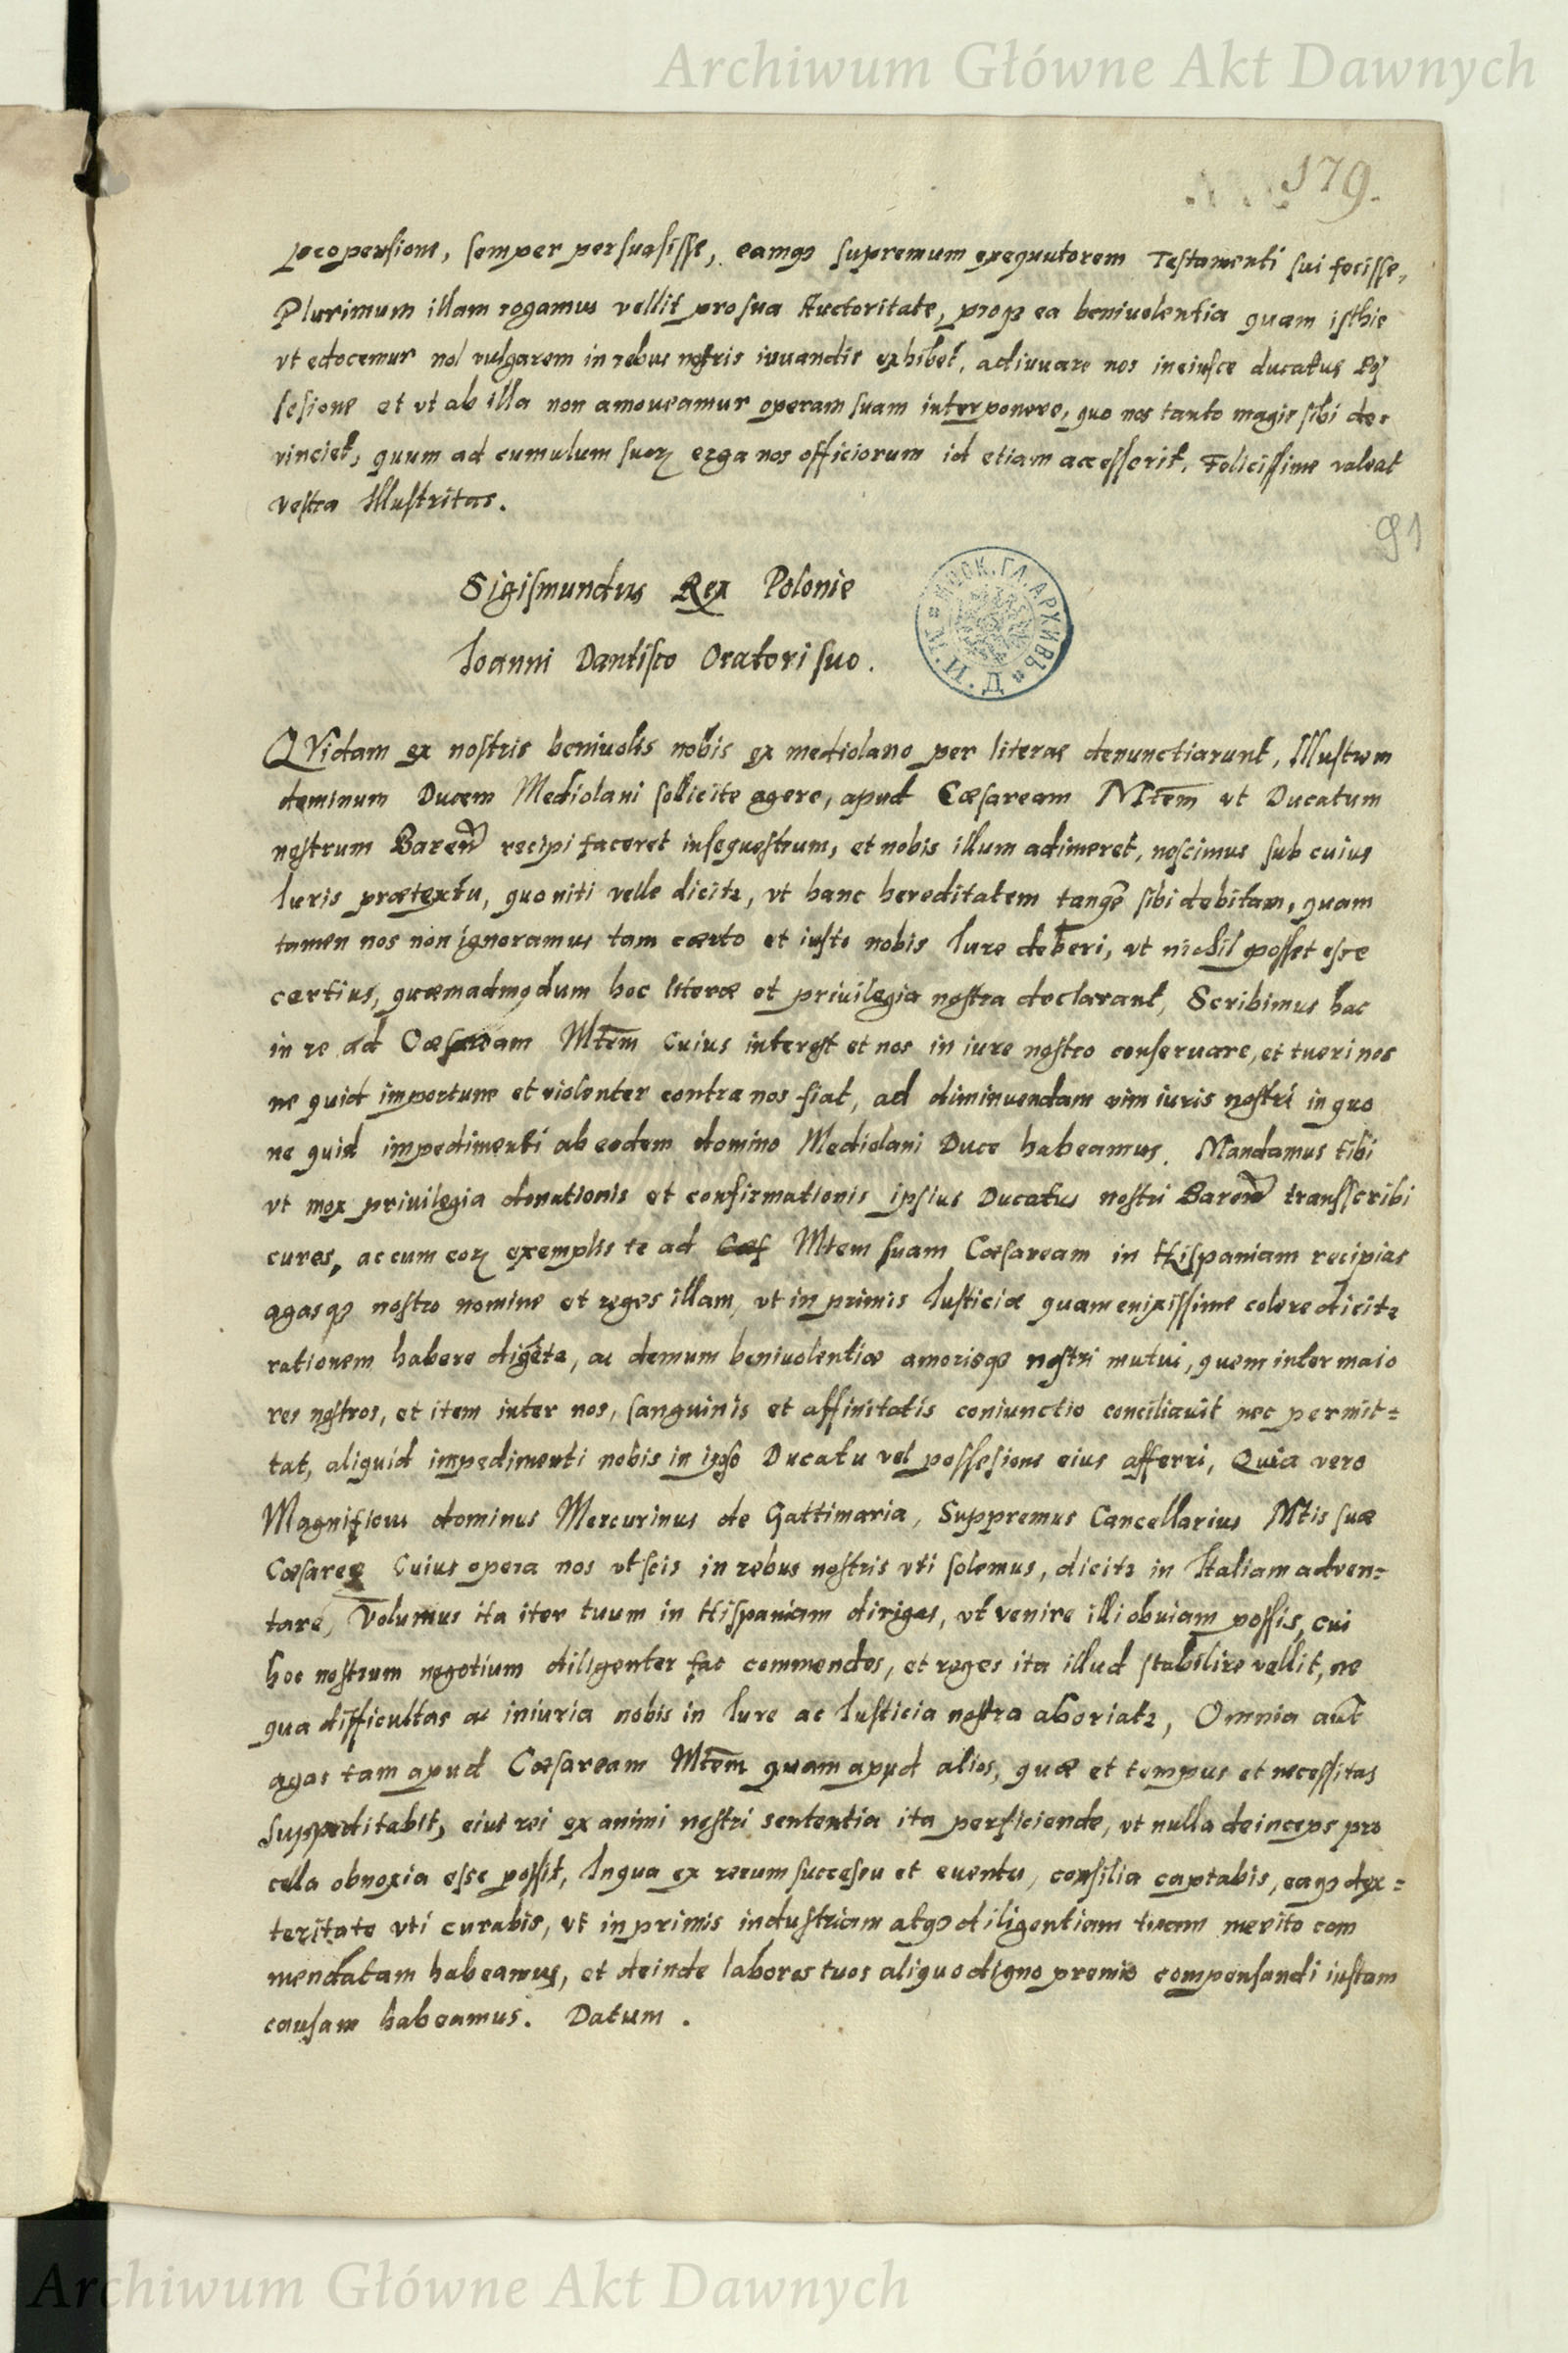 Archiwum Główne Akt Dawnych
179.
propensione, semper persuasisse, eamqȝ supremum exequutorem Testamenti sui fecisse,
Plurimum illam rogamus vellit pro sua Auctoritate, proqȝ ea beniuolentia quam isthic
vt edocemur nõ vulgarem in rebus nostris iuuandis exhibet, adiuuare nos in eiusce ducatus Pos
sesione et vt ab illa non amoueamur operam suam interponere, quo nos tanto magis sibi de-
vinciet, quum ad cumulum suoꝝ erga nos officiorum id etiam accesserit, Felicissime valeat
vestra Illustritas.
91
Sigismundus Rex Polonie
Ioanni Dantisco Oratori suo.
QVidam ex nostris beniuolis nobis ex mediolano per literas denunctiarunt, Illustrem
dominum Ducem Mediolani sollicite agere, apud Cæsaream Mtēm vt Ducatum
nostrum Bareñ recipi faceret in sequestrum, et nobis illum adimeret, noscimus sub cuius
Iuris prætextu, quo niti velle dicitꝛ, vt hanc hereditatem tanq̃ sibi debitam, quam
tamen nos non ignoramus tam certo et iusto nobis Iure deberi, vt nichil posset esse
certius, quæmadmodum hoc literæ et priuilegia nostra declarant, Scribimus hac
in re ad Cæsaream Mtēm cuius interest et nos in iure nostro conseruare, et tueri nos
ne quid importune et violenter contra nos fiat, ad diminuendam vim iuris nostri in quo
ne quid impedimenti ab eodem domino Mediolani Duce habeamus. Mandamus tibi
vt mox priuilegia donationis et confirmationis ipsius Ducatus nostri Bareñ transscribi
cures, ac cum eoꝝ exemplis te ad Cæs Mtem suam Cæsaream in Hispaniam recipias
agasqȝ nostro nomine et roges illam, vt in primis Iusticiæ quam enixissime colere dicitꝛ
rationem habere dignetꝛ, ac demum beniuolentiæ amorisqȝ nostri mutui, quem inter maio
res nostros, et item inter nos, sanguinis et affinitatis coniunctio conciliauit nec permit=
tat, aliquid impedimenti nobis in ipso Ducatu vel possesione eius afferri, Quia vero
Magnificus dominus Mercurinus de Gattimaria, Suppremus Cancellarius Mtis suæ
Cæsareę Cuius opera nos vt scis in rebus nostris vti solemus, dicitꝛ in Italiam aduen=
tare, Volumus ita iter tuum in Hispaniam dirigas, vt venire illi obuiam possis, cui
hoc nostrum negotium diligenter fac commendes, et roges ita illud stabilire vellit, ne
qua difficultas ac iniuria nobis in Iure ac Iusticia nostra aboriatꝛ, Omnia aut̃
agas tam apud Cæsaream Mtēm quam apud alios, quæ et tempus et necessitas
suppeditabit, eius rei ex animi nostri sententia ita perficiende, vt nulla deinceps pro
cella obnoxia esse possit, In qua ex rerum succesu et euentu, consilia captabis, eaqȝ dex=
teritate vti curabis, vt in primis industriam atqȝ diligentiam tuam merito com
mendatam habeamus, et deinde labores tuos aliquo digno premio compensandi iustam
causam habeamus. Datum.
Archiwum Główne Akt Dawnych